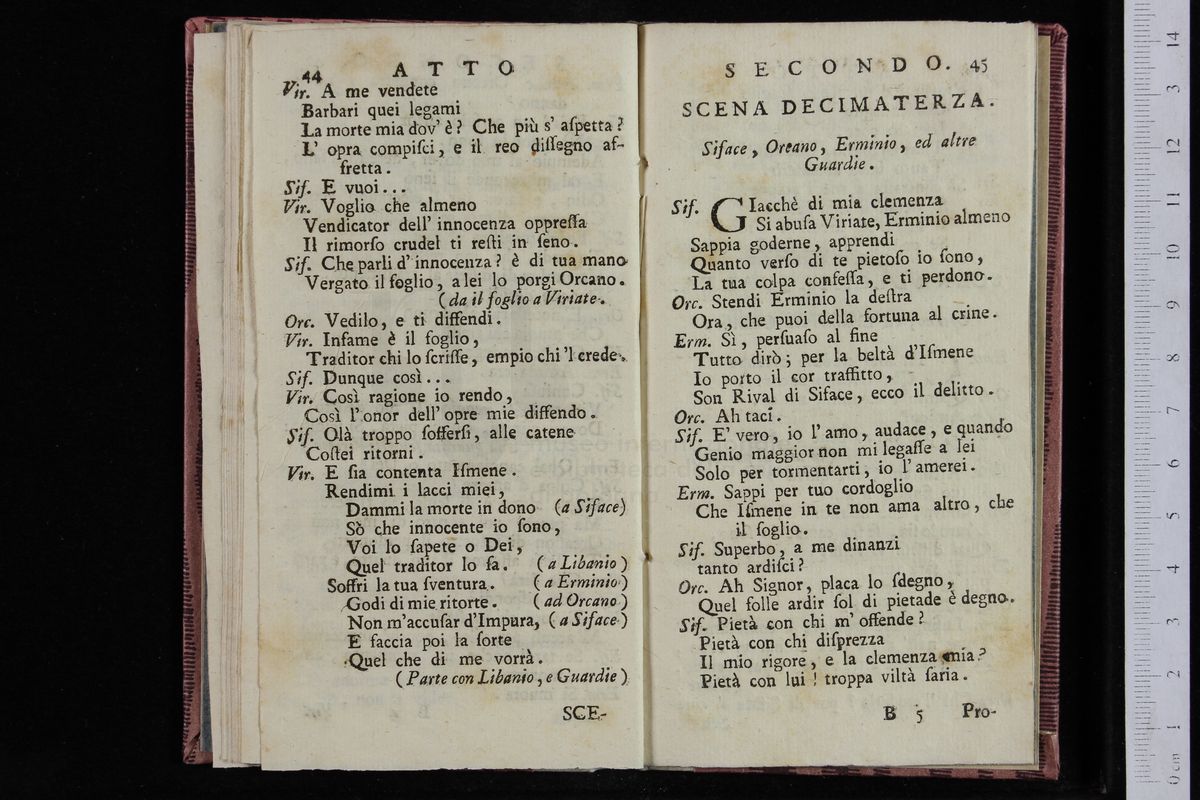 44 ATTO
Vir. A me vendete
Barbari quei legami
La morte mia dov' è? Che più s' aſpetta?
L' opra compiſci, e il reo diſſegno af-
fretta.
Sif. E vuoi...
Vir. Voglio che almeno
Vendicator dell' innocenza oppreſſa
Il rimorſo crudel ti reſti in ſeno.
Sif. Che parli d' innocenza? è di tua mano
Vergato il foglio, a lei lo porgi Orcano.
(da il foglio a Viriate.
Orc. Vedilo, e ti diffendi.
Vir. Infame è il foglio,
Traditor chi lo ſcriſſe, empio chi 'l crede.
Sif. Dunque così...
Vir. Così ragione io rendo,
Così l' onor dell' opre mie diffendo.
Sif. Olà troppo ſofferſi, alle catene
Coſtei ritorni.
Vir. E ſia contenta Iſmene.
Rendimi i lacci miei,
Dammi la morte in dono (a Siface)
Sò che innocente io ſono,
Voi lo ſapete o Dei,
Quel traditor lo ſa. (a Libanio)
Soffri la tua ſventura. (a Erminio)
Godi di mie ritorte. (ad Orcano)
Non m'accuſar d'Impura, (a Siface)
E faccia poi la ſorte
Quel che di me vorrà.
(Parte con Libanio, e Guardie)
SCE-
SECONDO. 45
SCENA DECIMATERZA.
Siface, Orcano, Erminio, ed altre
Guardie.
Sif. GIacchè di mia clemenza
Si abuſa Viriate, Erminio almeno
Sappia goderne, apprendi
Quanto verſo di te pietoſo io ſono,
La tua colpa confeſſa, e ti perdono.
Orc. Stendi Erminio la deſtra
Ora, che puoi della fortuna al crine.
Erm. Sì, perſuaſo al fine
Tutto dirò; per la beltà d'Iſmene
Io porto il cor traffitto,
Son Rival di Siface, ecco il delitto.
Orc. Ah taci.
Sif. E' vero, io l' amo, audace, e quando
Genio maggior non mi legaſſe a lei
Solo per tormentarti, io l' amerei.
Erm. Sappi per tuo cordoglio
Che Iſmene in te non ama altro, che
il ſoglio.
Sif. Superbo, a me dinanzi
tanto ardiſci?
Orc. Ah Signor, placa lo ſdegno,
Quel folle ardir ſol di pietade è degno.
Sif. Pietà con chi m' offende?
Pietà con chi diſprezza
Il mio rigore, e la clemenza mia?
Pietà con lui! troppa viltà ſaria.
B 5 Pro-
14
13
12
11
10
9
8
7
6
5
4
3
2
1
0 cm